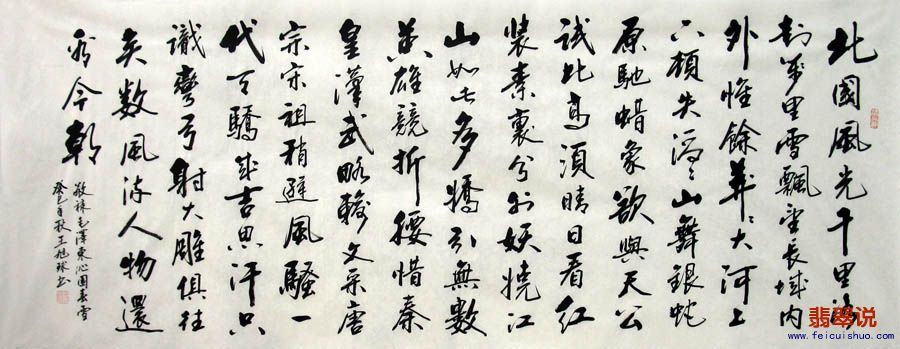 北國風光千里冰
封萬里雪飄望長城內
外惟餘莽〻大河上
下頓失滔〻山舞銀蛇
原馳蜡象欲與天公
試比高須晴日看紅
裝素裹分外妖嬈江
山如此多嬌引無數
英雄競折腰惜秦
皇漢武略輸文采唐
宗宋祖稍遜風騷一
代天驕成吉思汗只
識彎弓射大雕俱往
矣數風流人物還
看今朝
敬錄毛澤東沁園春雪
癸巳年秋王旭
翡翠说
www.feicuishuo.com